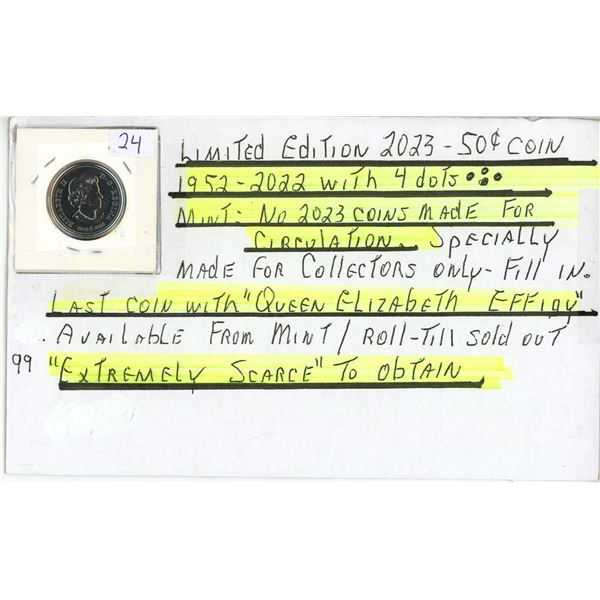 24
LIMITED EDITION 2023 - 50¢ COIN
1952-2022 WITH 4 dots
MINT: NO 2023 COINS MADE FOR
CIRCULATION. SPECIALLY
MADE FOR COLLECTORS ONLY - FILL IN.
LAST COIN WITH "QUEEN ELIZABETH EFFIGY"
. AVAILABLE FROM MINT / ROLL-TILL SOLD OUT
99 "EXTREMELY SCARCE" TO OBTAIN